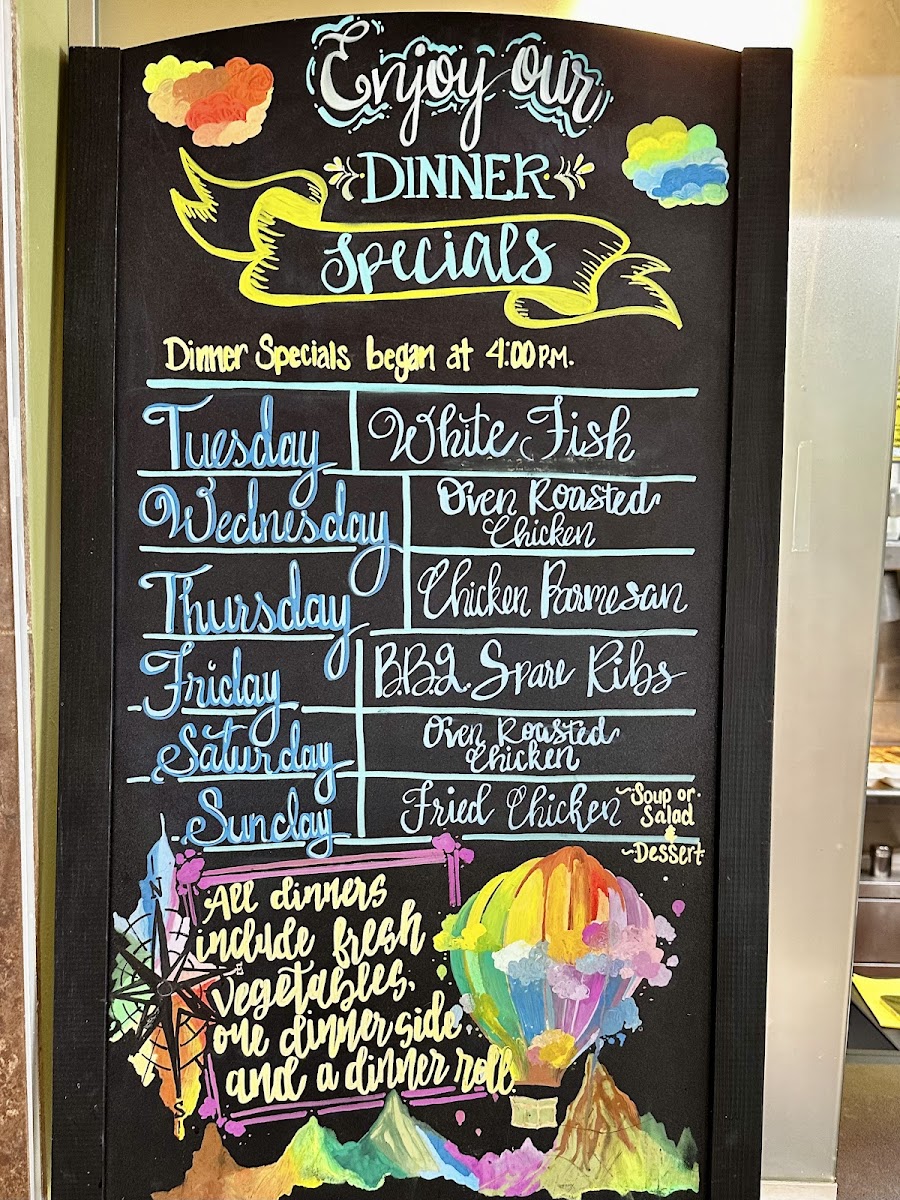 Enjoy our
DINNER
Specials
Dinner Specials began at 4:00 P.M.
Tuesday White Fish
Wednesday Oven Roasted
Chicken
Thursday Chicken Parmesan
Friday B.B.Q. Spare Ribs
Saturday Oven Roasted
Chicken
Sunday Fried Chicken ~Soup or
Salad
&
~Dessert
All dinners
include fresh
vegetables,
one dinner side,
and a dinner roll.
N
E
S